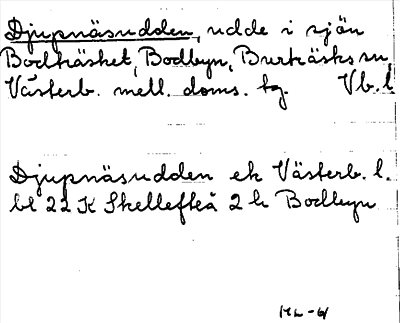 Djupnäsudden, udde i sjön
Bodträsket, Bodbyn, Burträsks sn,
Västerb. mell. doms. tg. Vb. l
Djupnäsudden ek Västerb. l.
bl 22 K Skellefteå 2 h Bodbyn
ML-61